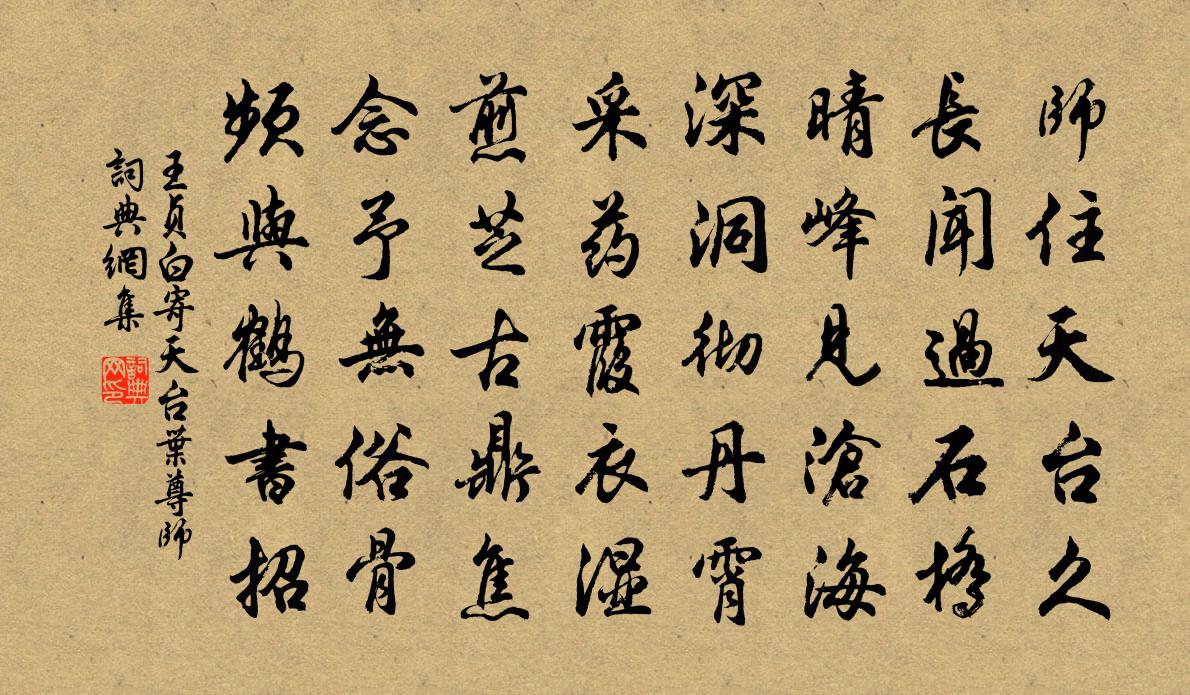 師住天台久
長聞過石橋
晴峰見滄海
深洞彻丹霄
采药霞衣湿
煎芝古鼎焦
念予無俗骨
頻與鶴書招
王貞白寄天台葉尊師
詞典網集
詞典网印